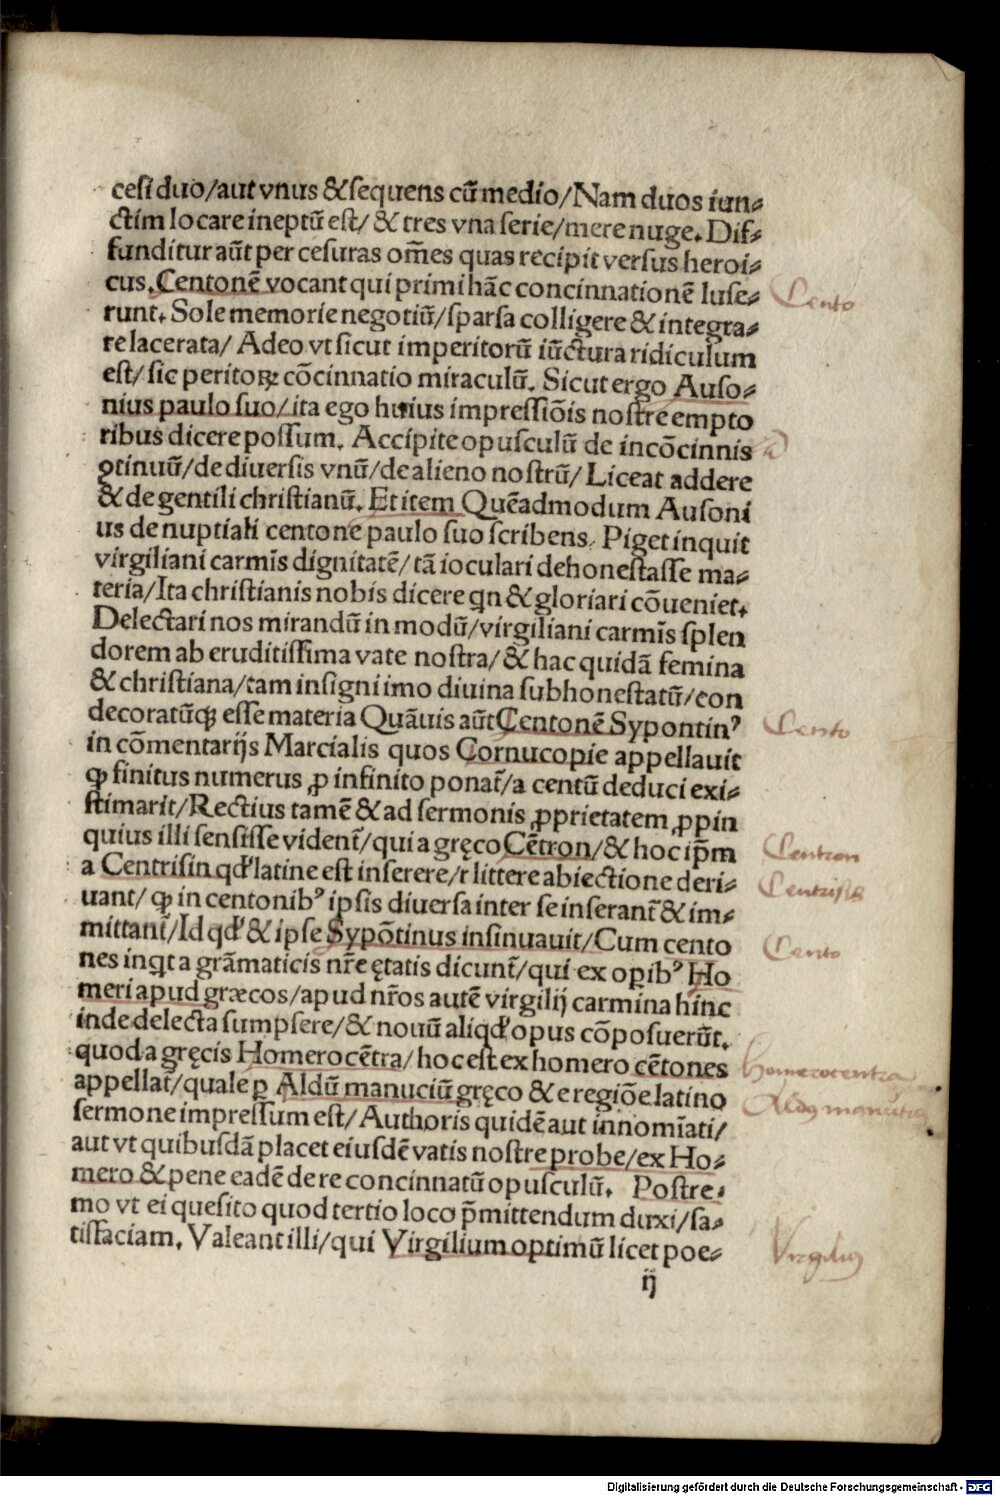 cesi duo/aut vnus & sequens cū medio/Nam duos iun⸗
ctim locare ineptū est/ & tres vna serie/mere nuge. Dif⸗
funditur aūt per cesuras om̄es quas recipit versus heroi⸗
cus. Centonē vocant qui primi hāc concinnationē luse⸗
runt. Sole memorie negotiū/sparsa colligere & integra⸗
re lacerata/ Adeo vt sicut imperitorū iūctura ridiculum
est/ sic peritoꝝ cōcinnatio miraculū. Sicut ergo Auso⸗
nius paulo suo/ita ego huius impressiōis nostre empto
ribus dicere possum. Accipite opusculū de incōcinnis
ꝯtinuū/de diuersis vnū/de alieno nostrū/ Liceat addere
& de gentili christianū. Et item Quēadmodum Ausoni
us de nuptiali centone paulo suo scribens. Piget inquit
virgiliani carmīs dignitatē/ tā ioculari dehonestasse ma⸗
teria/Ita christianis nobis dicere qn & gloriari cōueniet.
Delectari nos mirandū in modū/virgiliani carmīs splen
dorem ab eruditissima vate nostra/ & hac quidā femina
& christiana/tam insigni imo diuina subhonestatū/con
decoratūqꝫ esse materia Quāuis aūt Centonē Sypontinꝰ
in cōmentarijs Marcialis quos Cornucopie appellauit
ꝙ finitus numerus ꝓ infinito ponat̄/a centū deduci exi⸗
stimarit/Rectius tamē & ad sermonis ꝓprietatem ꝓpin
quius illi sensisse vident̄/qui a gręco Cētron/& hoc ip̄m
a Centrisin qd' latine est inserere/r littere abiectione deri⸗
uant/ ꝙ in centonibꝰ ipsis diuersa inter se inserant̄ & im⸗
mittant̄/Id qd' & ipse Sypōtinus insinuauit/Cum cento
nes inqt a grāmaticis nr̄e ętatis dicunt̄/qui ex opibꝰ Ho
meri apud græcos/apud nr̄os autē virgilij carmina hinc
inde delecta sumpsere/& nouū aliqd' opus cōposuerūt.
quod a gręcis Homerocētra/hoc est ex homero cētones
appellat̄/quale ꝑ Aldū manuciū gręco & e regiōe latino
sermone impressum est/ Authoris quidē aut innomīati/
aut vt quibusdā placet eiusdē vatis nostre probe/ex Ho⸗
mero & pene eadē de re concinnatū opusculū. Postre⸗
mo vt ei quesito quod tertio loco p̄mittendum duxi/sa⸗
tisfaciam. Valeant illi/qui Virgilium optimū licet poe⸗
ij
Cento
Cento
Centron
Cento
Homerocentra
Aldꝰ manutiꝰ
Virgiliꝰ
Digitalisierung gefördert durch die Deutsche Forschungsgemeinschaft - DFG